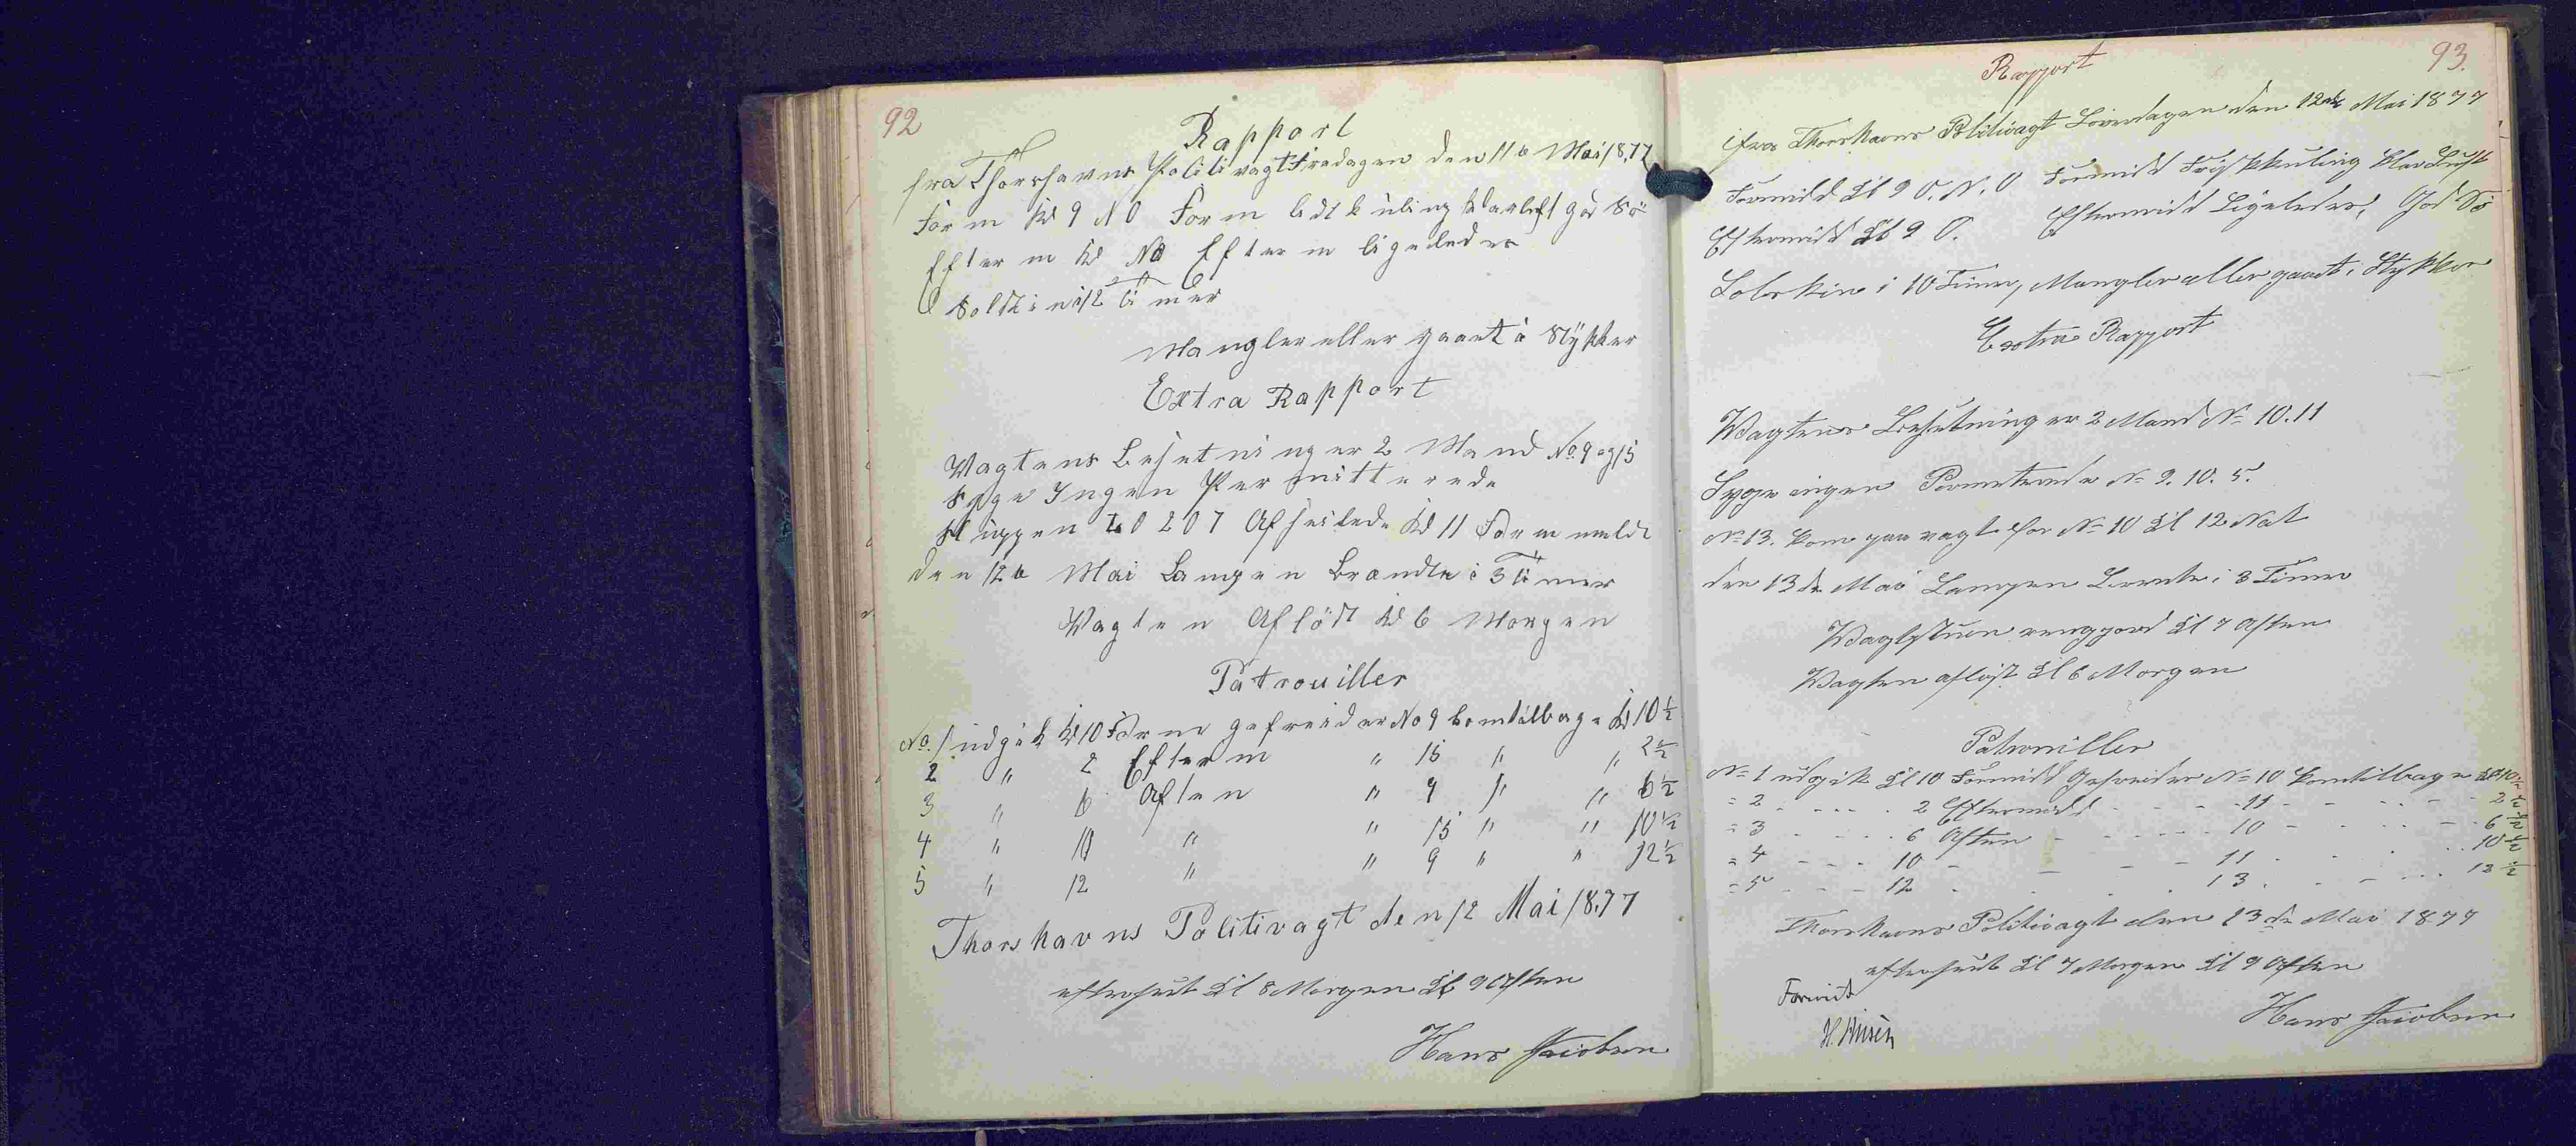 92
Rapport
fra Thorshavns Politivagt Fredagen den 11te Mai 1877
Form Kl 9 NO Form let kuling klarluft god Sö
Efterm Kl NO Efterm ligeledes
Solskin i 12 Timer
Mangler eller gaaet i Stykker
Extra Rapport
Vagtens Besetning er 2 Mand No. 9 og 15
Syge Ingen Permitterede
Sluppen No 207 Afseilede Kl 11 Form
den 12te Mai Lampen Brændte i 3 Timer
Vagten Aflöst Kl 6 Morgen
Patrouiller
No. 1 udgik Kl 10 Form gefreider No 9 kom tilbage Kl 10 1/2
2 " 2 Efterm " 15 " " 2 1/2
3 " 6 Aften " 9 " " 6 1/2
4 " 10 " " 15 " " 10 1/2
5 " 12 " " 9 " " 12 1/2
Thorshavns Politivagt den 12 Mai 1877
efterseet Kl 8 Morgen Kl 9 Aften
Hans Jacobsen
93.
Rapport
fra Thorshavns Politivagt Löverdagen den 12te Mai 1877
Formidd Kl 9 O.N.O Formidd Friskkuling klar Luft
Eftermidd Kl 9 O. Eftermidd Ligeledes, God Sö
Solskin i 10 Timer, Mangler eller gaaet i Stykker
Extra Rapport
Vagtens Besetning er 2 Mand No 10. 11
Syge ingen Permiterede No 9. 10. 5.
No 13. kom paa vagt for No 10 Kl 12 Nat
den 13de Mai Lampen Brente i 3 Timer
Vagtstuen rengjord Kl 7 Aften
Vagten aflöst Kl 6 Morgen
Patrouiller
No 1 udgik Kl 10 Formidd Gefreider No 10 kom tilbage Kl 10 1/2
= 2 - - - - 2 Eftermidd - - - - 11 - - - - 2 1/2
= 3 - - - - 6 Aften - - - - 10 - - - - 6 1/2
= 4 - - - 10 - - - 11 - - - 10 1/2
= 5 - - - 12 - - - 13 - - - 12 1/2
Thorshavns Politivagt den 13de Mai 1877
efterseet Kl 7 Morgen Kl 9 Aften
Forevist
Hans Jacobsen